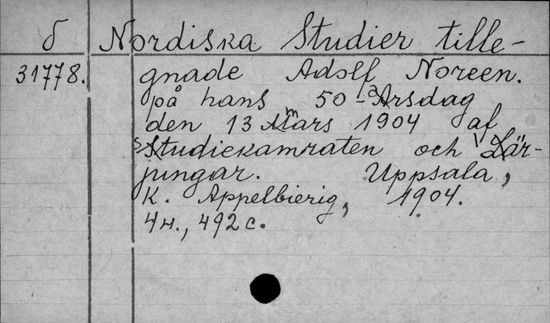 б Nordiska Studier tille-
31778. gnade Adolf Noreen.
på hans 50-årsdag
den 13 mars 1904 af
studiekamraten och lär-
jungar. Uppsala,
K. Appelbierig, 1904.
4н., 492 с.